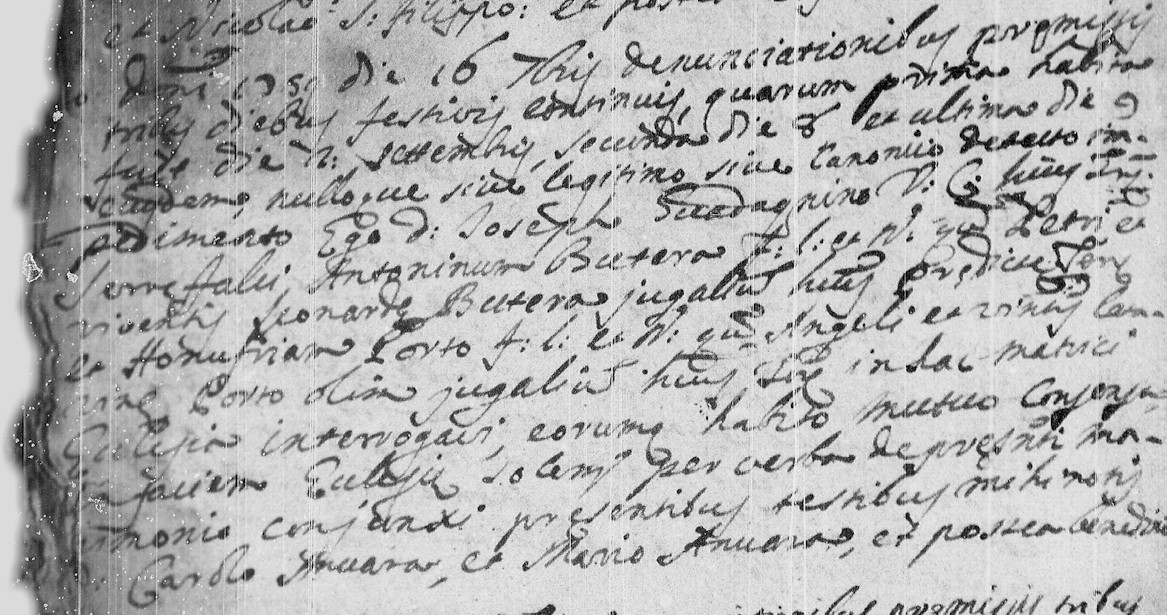 et Nicolao S: Filippo: et postea
Dni 1751 die 16 7bris denunciationibus premissis
tribus diebus festivis continuis, quarum prima habita
fuit die 2: settembris, secunda die 8 et ultima die 9
eiusdem, nulloque sive legitimo sive Canonico detecto im-
pedimento Ego D: Joseph Guadagnino V: C: huius Tre:
Serrefalci, Antoninum Butera f: l: et N: qd Petri et
viventis Leonarde Butera jugalium huius predicte Terre
et Honufriam Porto f: l: et N: qdm Angeli et viventis Cam-
Porto olim jugalium huius Tre in hac matrici
Ecclesia interrogavi, eorumq habito mutuo consensu
in faciem Ecclesie solemr per verba de presenti ma-
trimonio conjunxi presentibus testibus mihi notis
D: Carolo Anvara, et Mario Anvara, et postea benedixi
premissis tribus